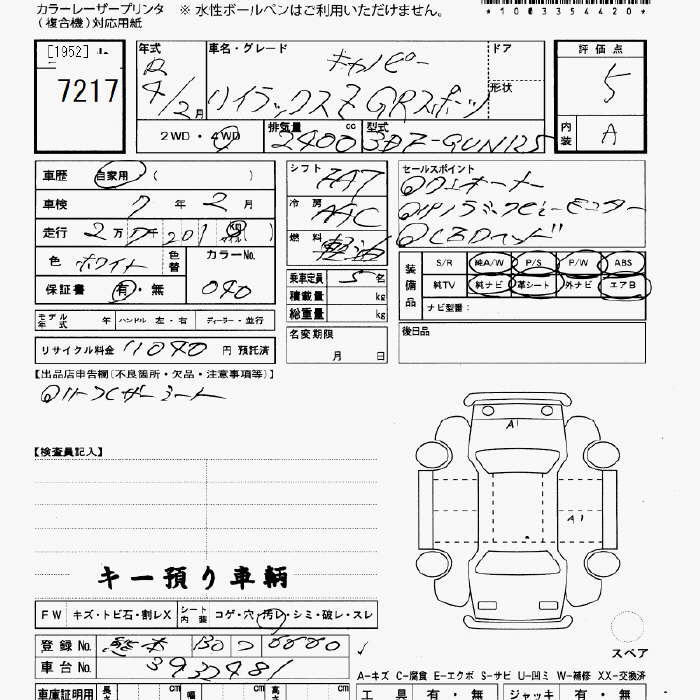 カラーレーザープリンタ ※ 水性ボールペンはご利用いただけません。
(複合機)対応用紙
*1003354420*
[1952]
7217
年式 R 4/2月
車名・グレード キャノピー
ハイラックスZ GRスポーツ
ドア
形状
2WD・4WD 排気量 2400 cc 型式 3DF-GUN125
評価点 5
内装 A
車歴 自家用 ( )
車検 7 年 2 月
走行 2万 201 km マイル
色 ホワイト 色替 カラーNo. 040
保証書 有・無
シフト 7AT
冷房 AAC
燃料 軽油
乗車定員 5 名
積載量 kg
総重量 kg
名変期限
月 日
セールスポイント
①ワンオーナー
②LEDヘッド
装備品 S/R 純A/W P/S P/W ABS
純TV 純ナビ 革シート 外ナビ エアB
ナビ型番:
後日品
モデル年式 年 ハンドル 左・右 ディーラー・並行
リサイクル料金 11040 円 預託済
【出品店申告欄(不良箇所・欠品・注意事項等)】
シート
【検査員記入】
キー預り車輌
FW キズ・トビ石・割レX シート内装 コゲ・穴・汚レ・シミ・破レ・スレ
登録 No. 熊本 130 つ 8880
車台 No. 3932481
車庫証明用 長さ cm 幅 cm 高さ cm
A1
A1
スペア
A-キズ C-腐食 E-エクボ S-サビ U-凹ミ W-補修 XX-交換済
工具 有・無 ジャッキ 有・無